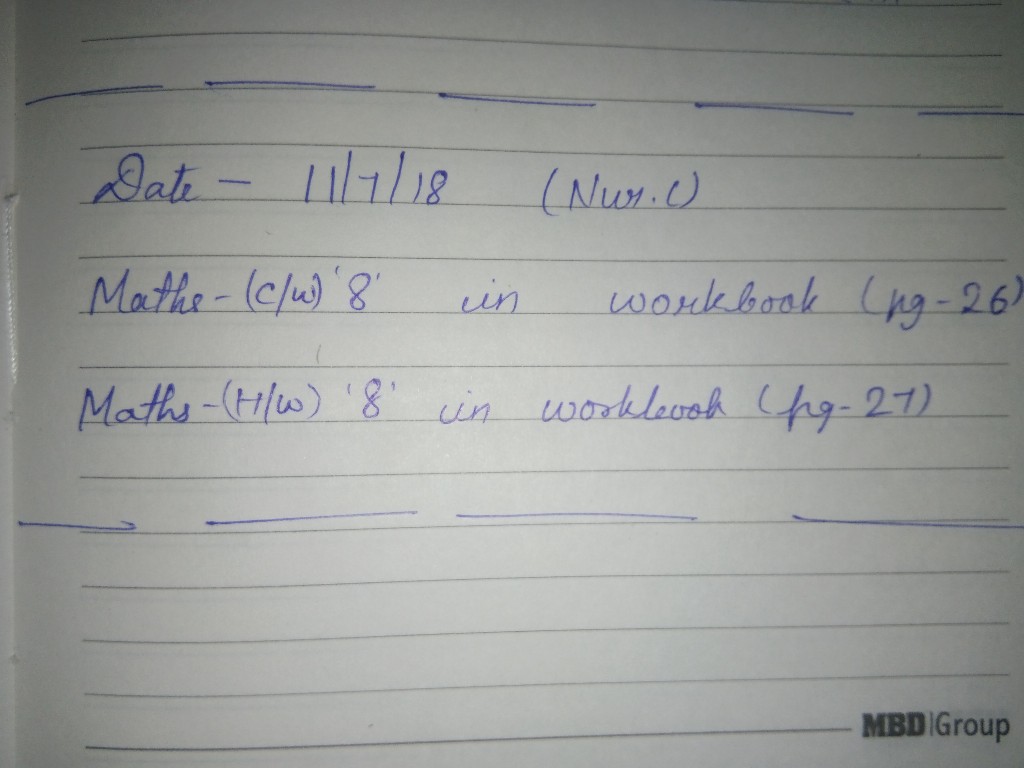 Date - 11/7/18 (Nur. C)
Maths - (C/W) '8' in workbook (pg - 26)
Maths - (H/W) '8' in workbook (pg - 27)
MBD|Group